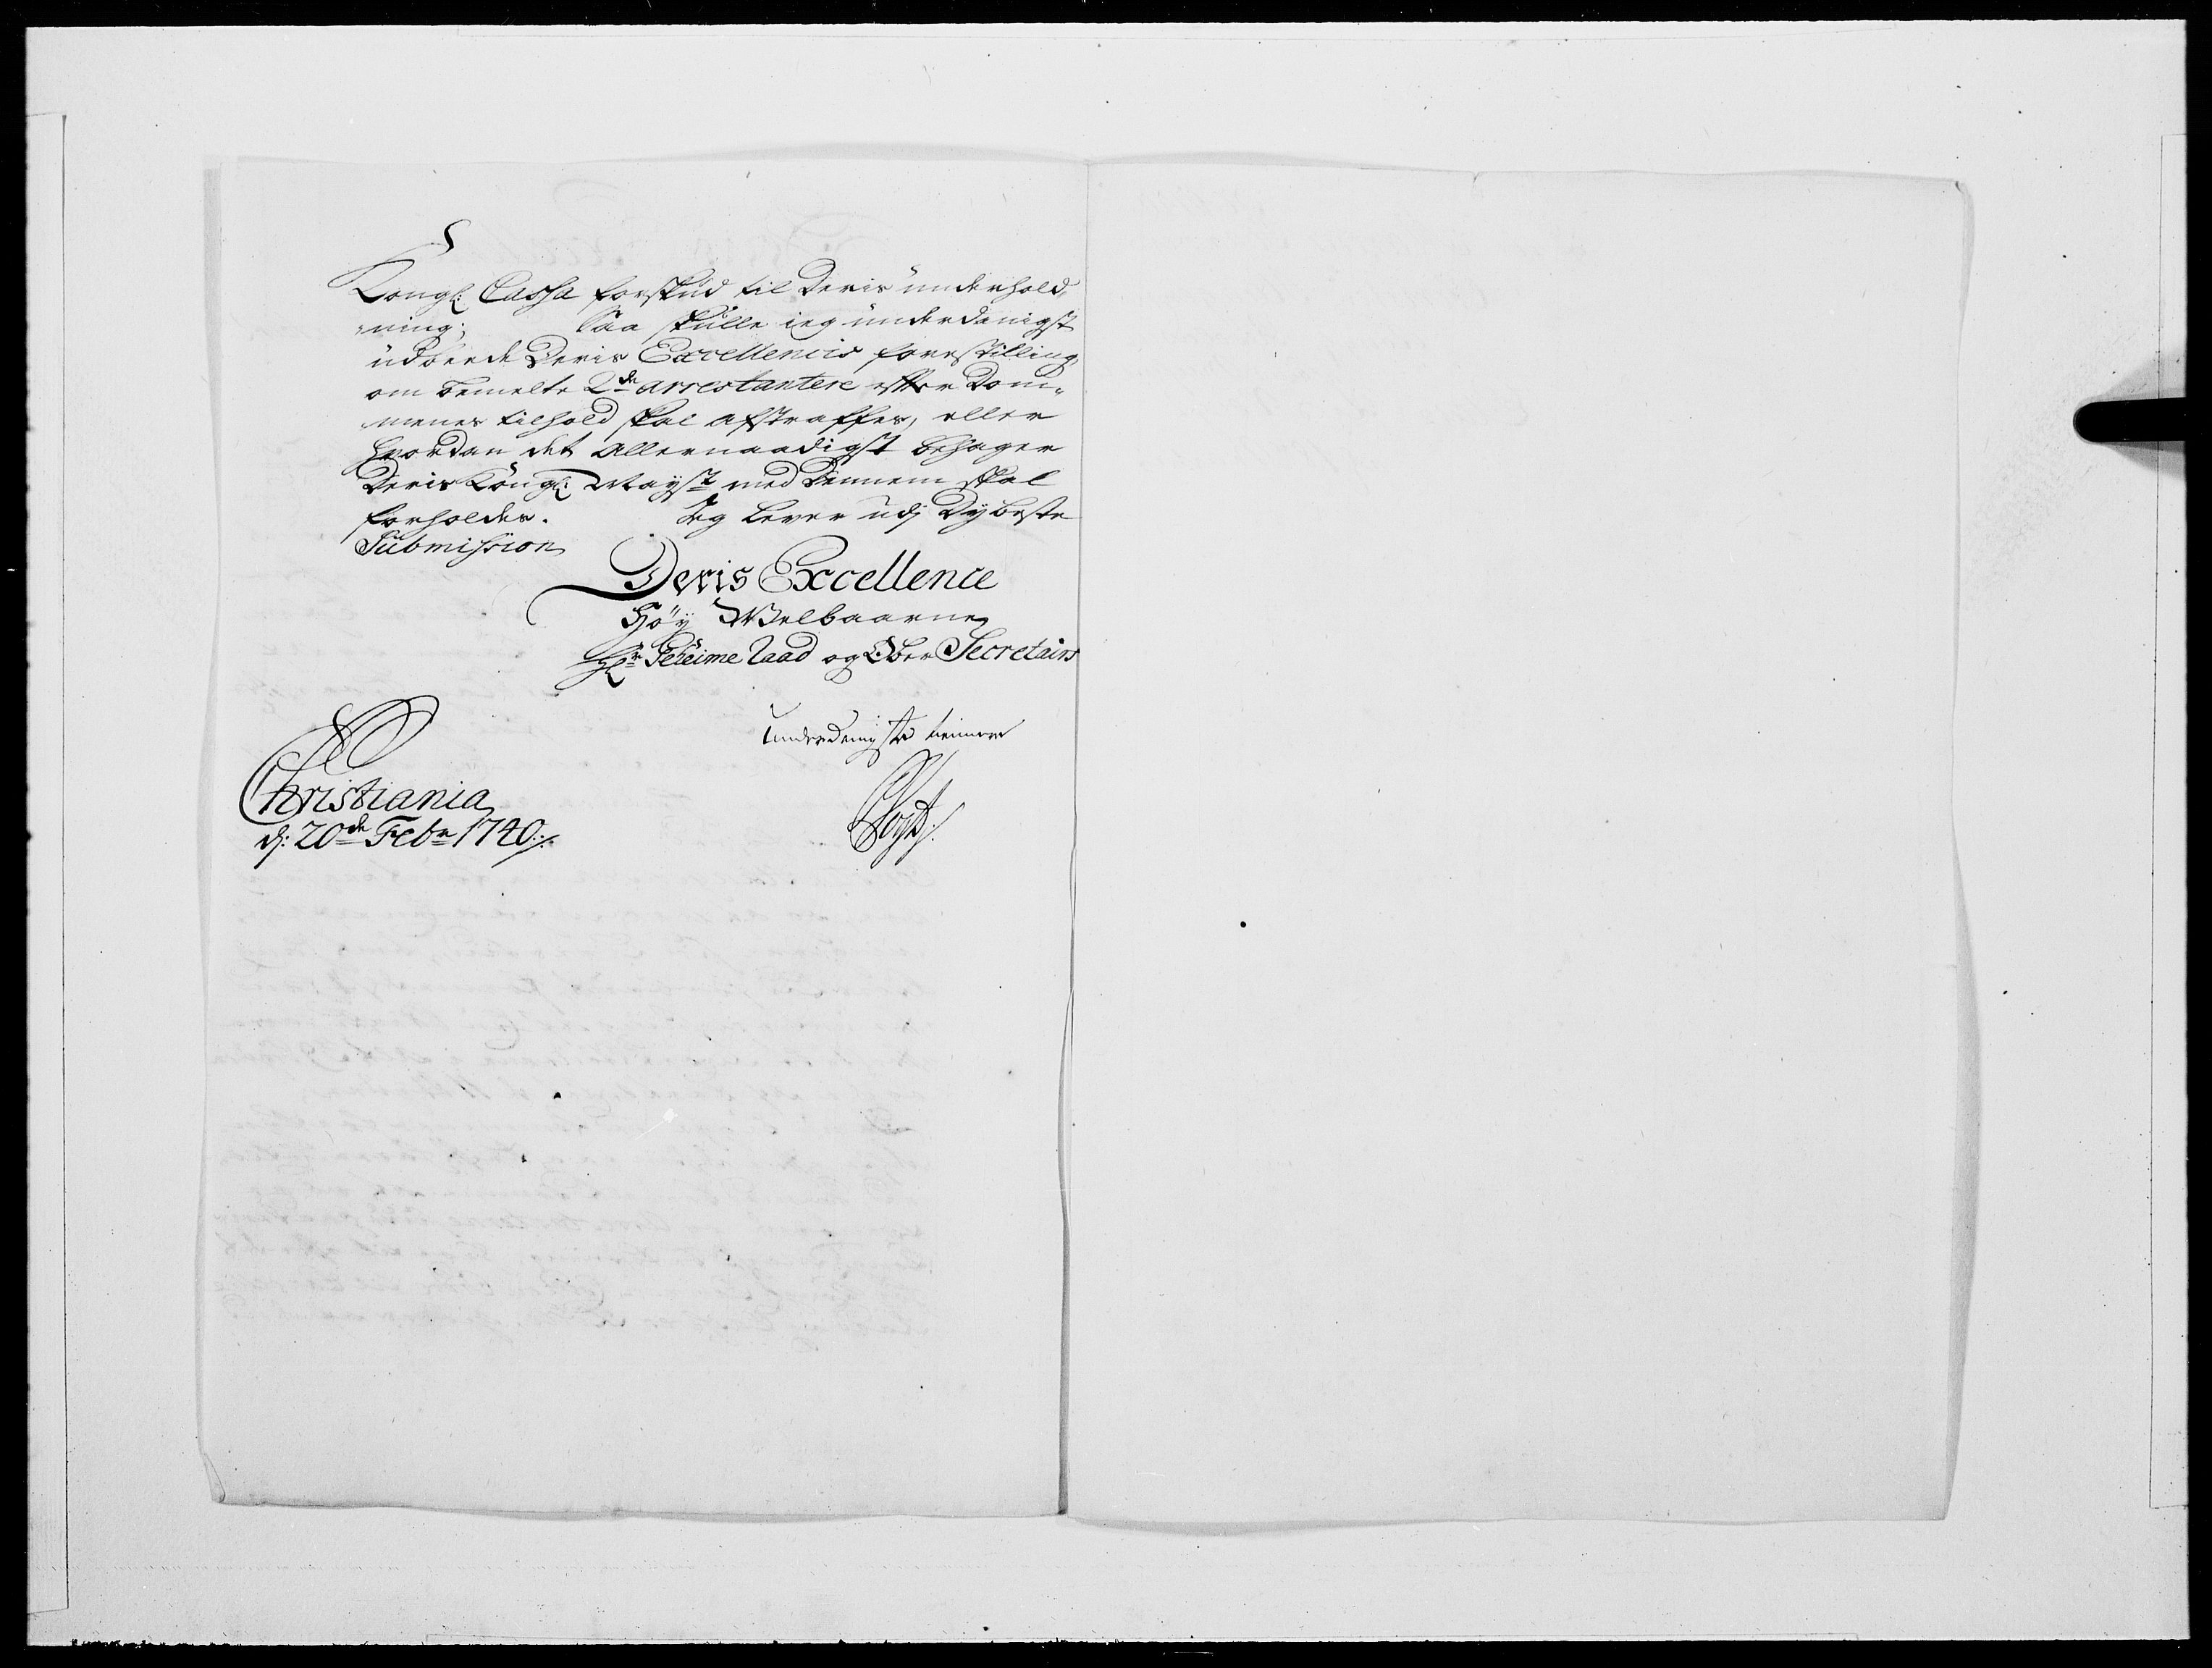 Kongl: Cassa forskud til Deris underhold,,
,,ning; Saa skulle ieg underdanigst
udbeede Deris Excellencis forestilling
om bemelte 2de arrestantere efter Dom-
menes tilhold skal afstraffes, eller
hvordan det Allernaadigst behager
Deris Kongl: Mayst med dennem skal
forholdes. Jeg lever udj Dybeste
Submission
Deris Excellence
Høy Welbaarne
Hr Geheime Raad og Ober Secretairs
underdanigste tienner
Christiania
d: 20de Febr 1740 ./.